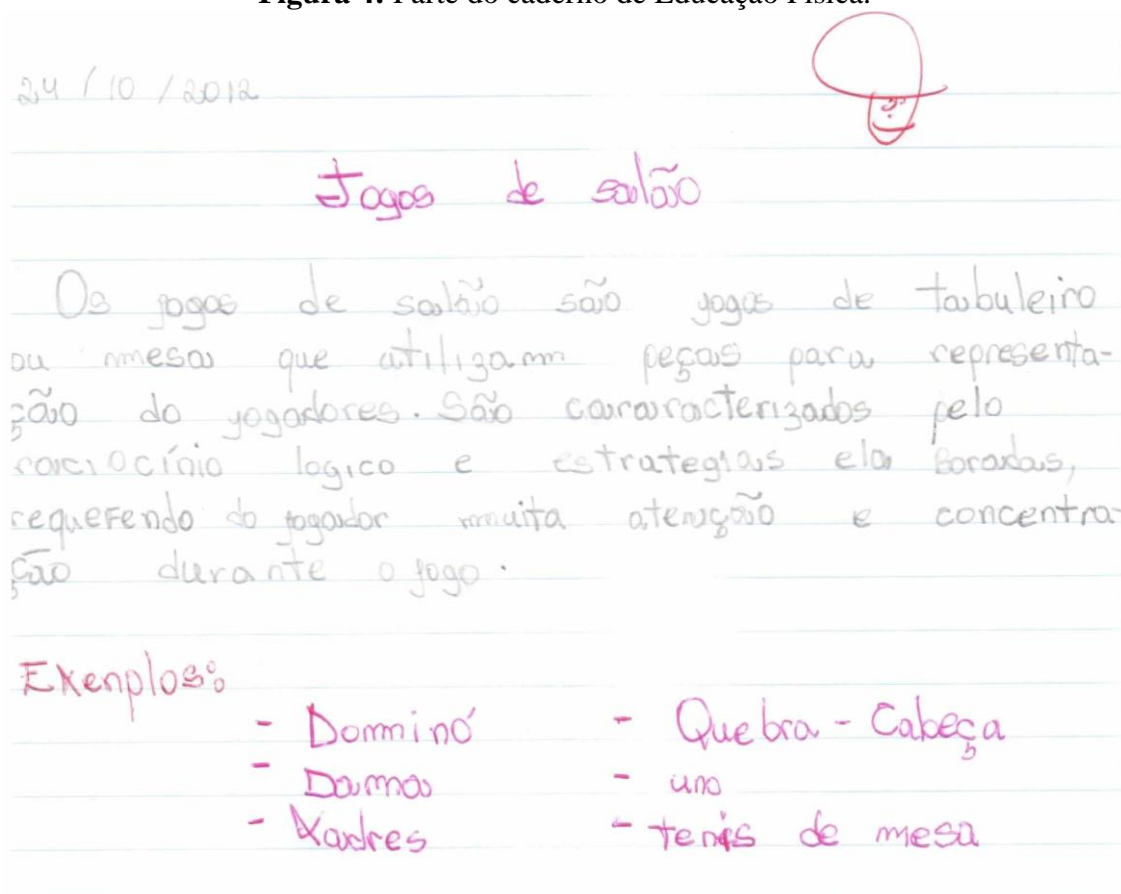 Figura 4. Parte do caderno de Educação Física.
24/10/2012
Jogos de salão
Os jogos de salão são jogos de tabuleiro
ou mesa que utilizam peças para representa-
ção do jogadores. São cararacterizados pelo
raciocínio logico e estrategias ela boradas,
requerendo do jogador muita atenção e concentra-
ção durante o jogo.
Exenplos:
- Dominó - Quebra-Cabeça
- Dama - uno
- Xadres - tenis de mesa